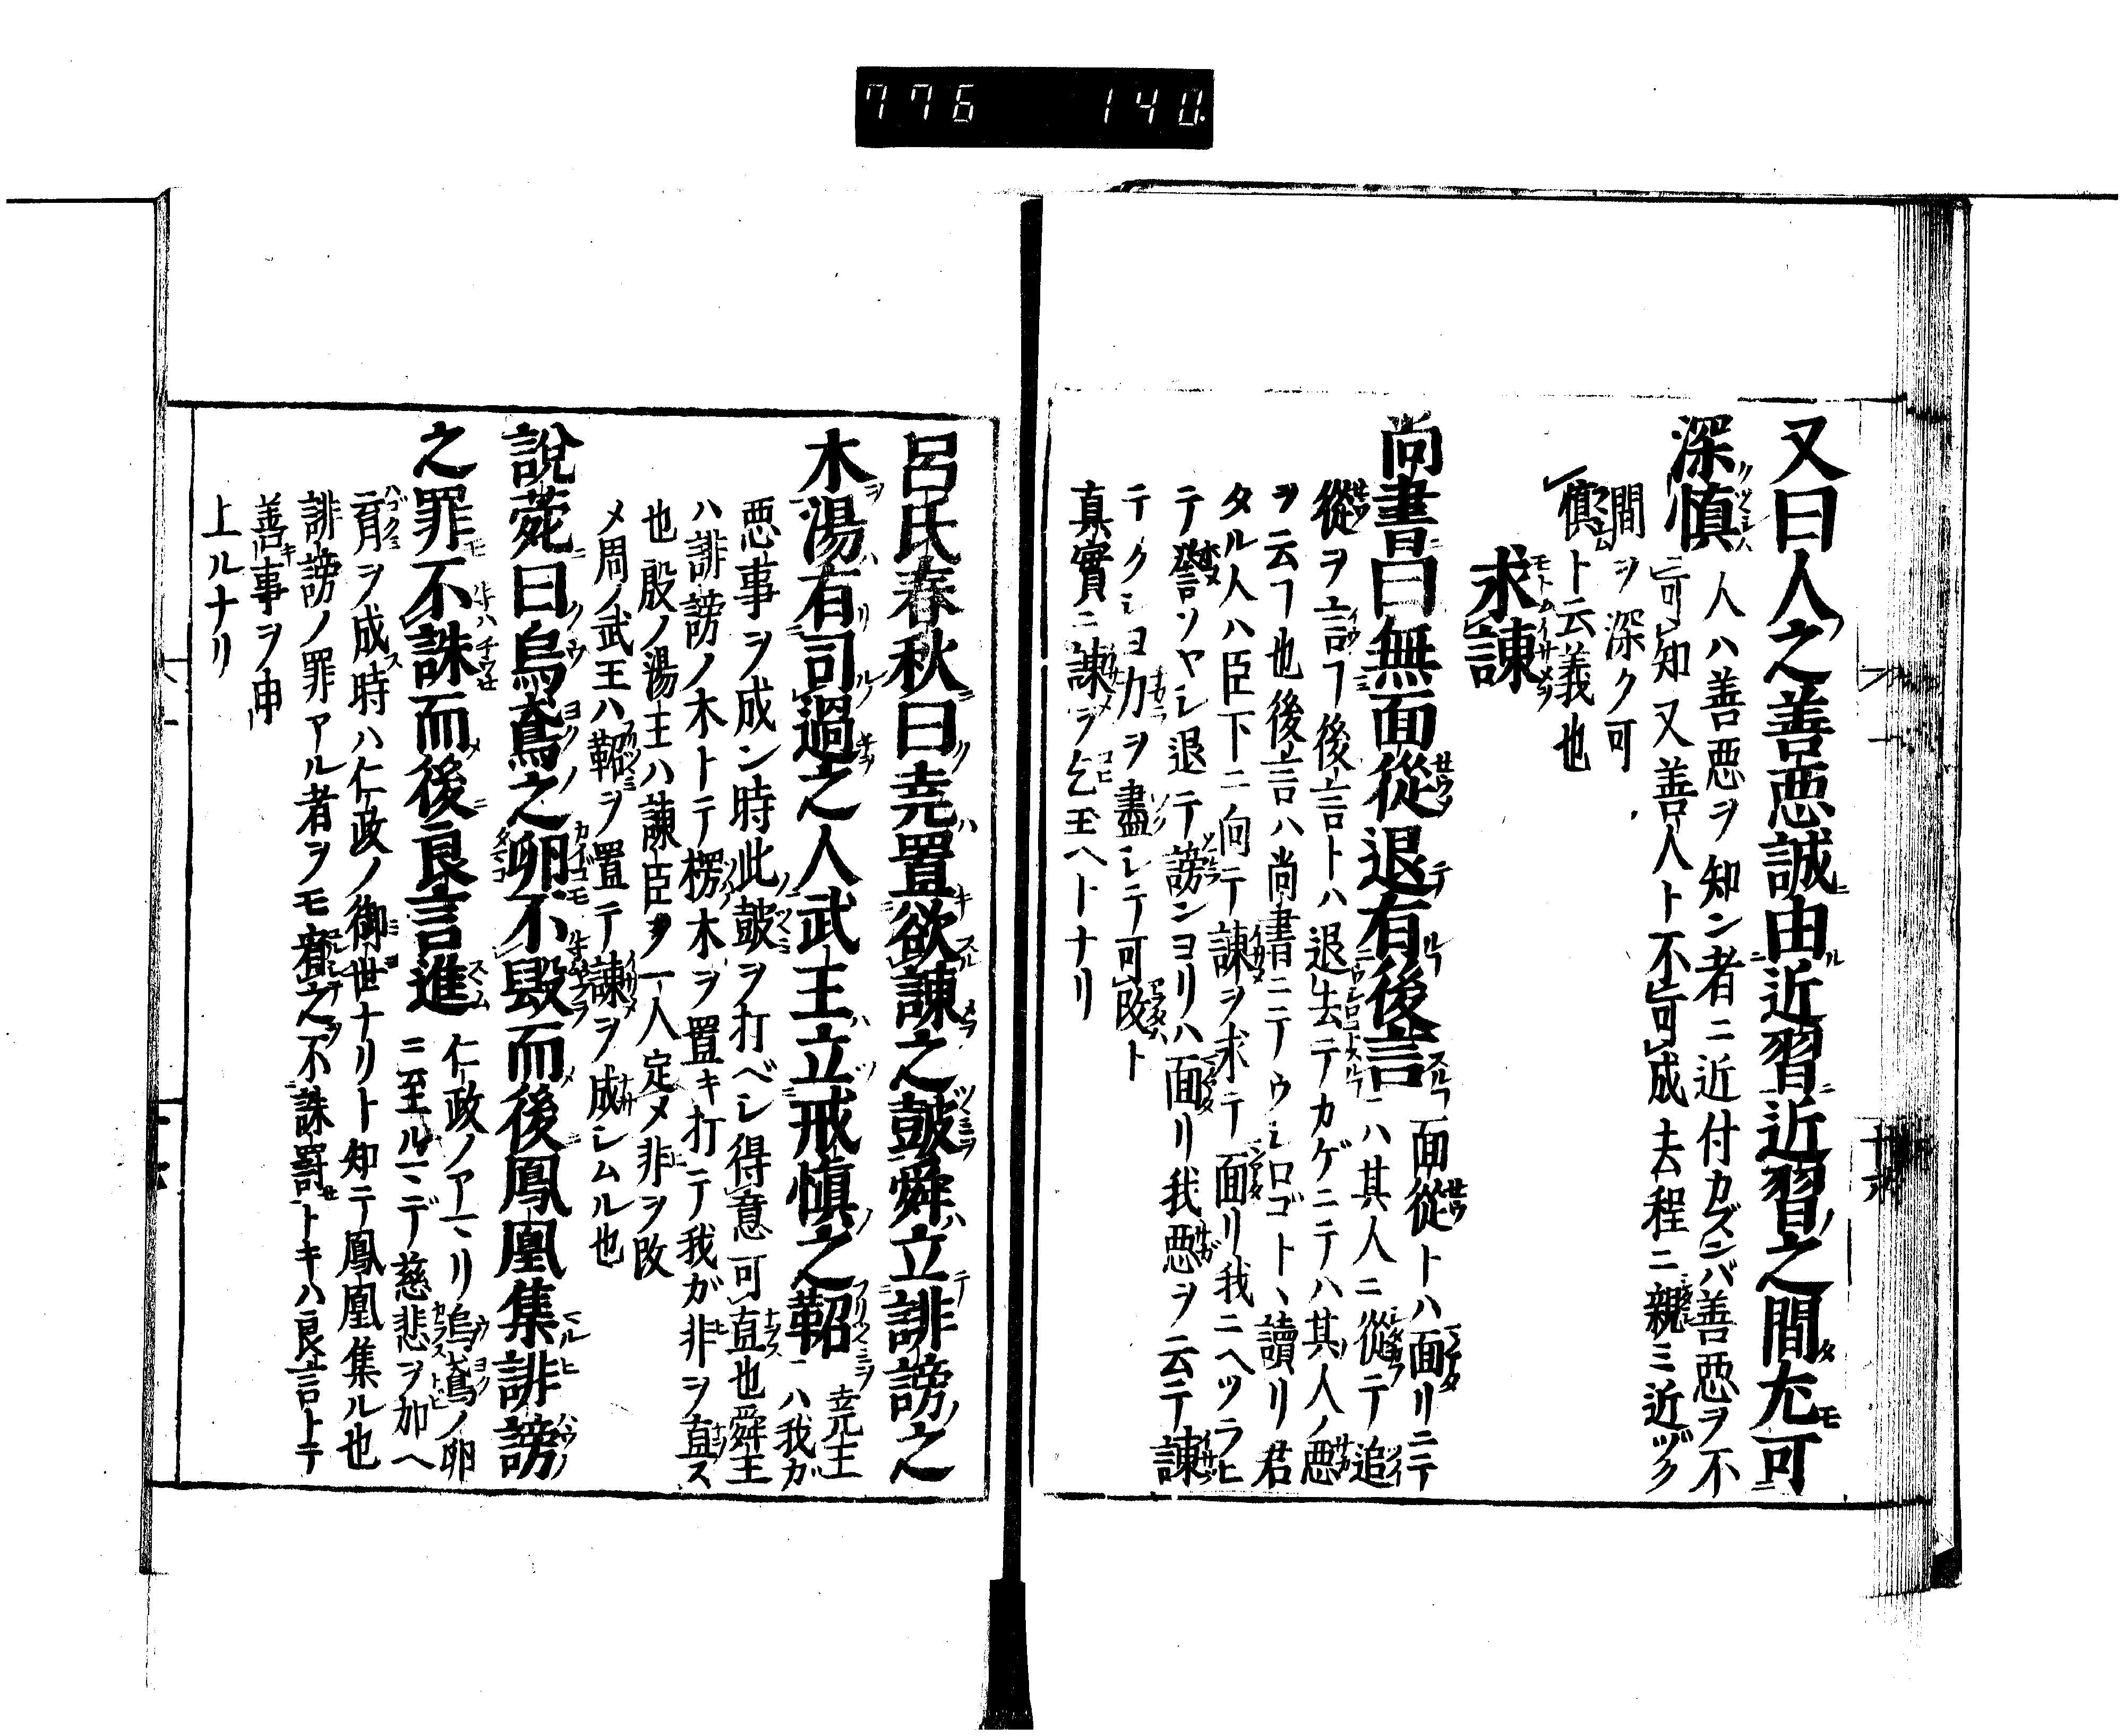 776 140
又曰人之善悪誠由近習近習之間尤可
深慎 人ハ善悪ヲ知ン者ニ近付カズンバ善悪ヲ不
可知又善人ト不可成去程ニ親ミ近ヅク
間ヲ深ク可
慎ト云義也
求諌
尚書曰無面從退有後言 面從トハ面リニテ
ハ其人ニ從テ追
從ヲ言フ後言トハ退去テカゲニテハ其人ノ悪
ヲ云フ也後言ハ尚書ニテウシロゴトヽ讀リ君
タル人ハ臣下ニ向テ諌ヲ求テ面リ我ニヘツラヒ
テ譽ソヤシ退テ謗ンヨリハ面リ我悪ヲ云テ諌
テクショ力ヲ盡シテ可改ト
真實ニ諌ヲ乞玉ヘトナリ
呂氏春秋曰尭置欲諌之皷舜立誹謗之
木湯有司過之人武王立戒慎之鞀 尭王
ハ我ガ
悪事ヲ成ン時此皷ヲ打ベシ得意可直也舜王
ハ誹謗ノ木トテ楞木ヲ置キ打テ我ガ非ヲ直ス
也殷ノ湯王ハ諌臣ヲ一人定メ非ヲ改
メ周ノ武王ハ鞀ヲ置テ諌ヲ成シムル也
說菀曰烏鳶之卵不毀而後鳳凰集誹謗
之罪不誅而後良言進 仁政ノアマリ烏鳶ノ卵
ニ至ルマデ慈悲ヲ加ヘ
育ヲ成時ハ仁政ノ御世ナリト知テ鳳凰集ル也
誹謗ノ罪アル者ヲモ宥之不誅罸トキハ良言トテ
善事ヲ申
上ルナリ